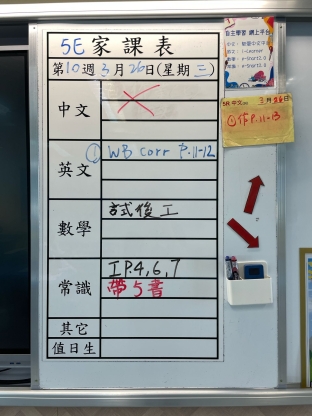 5E 家課表
第10週3月26日(星期三)
中文
英文 ① WB corr P.11-12
數學 試後工
常識 工P.4,6,7
帶5書
其它
值日生
自主學習 網上平台
3月26日
①作P.11-13